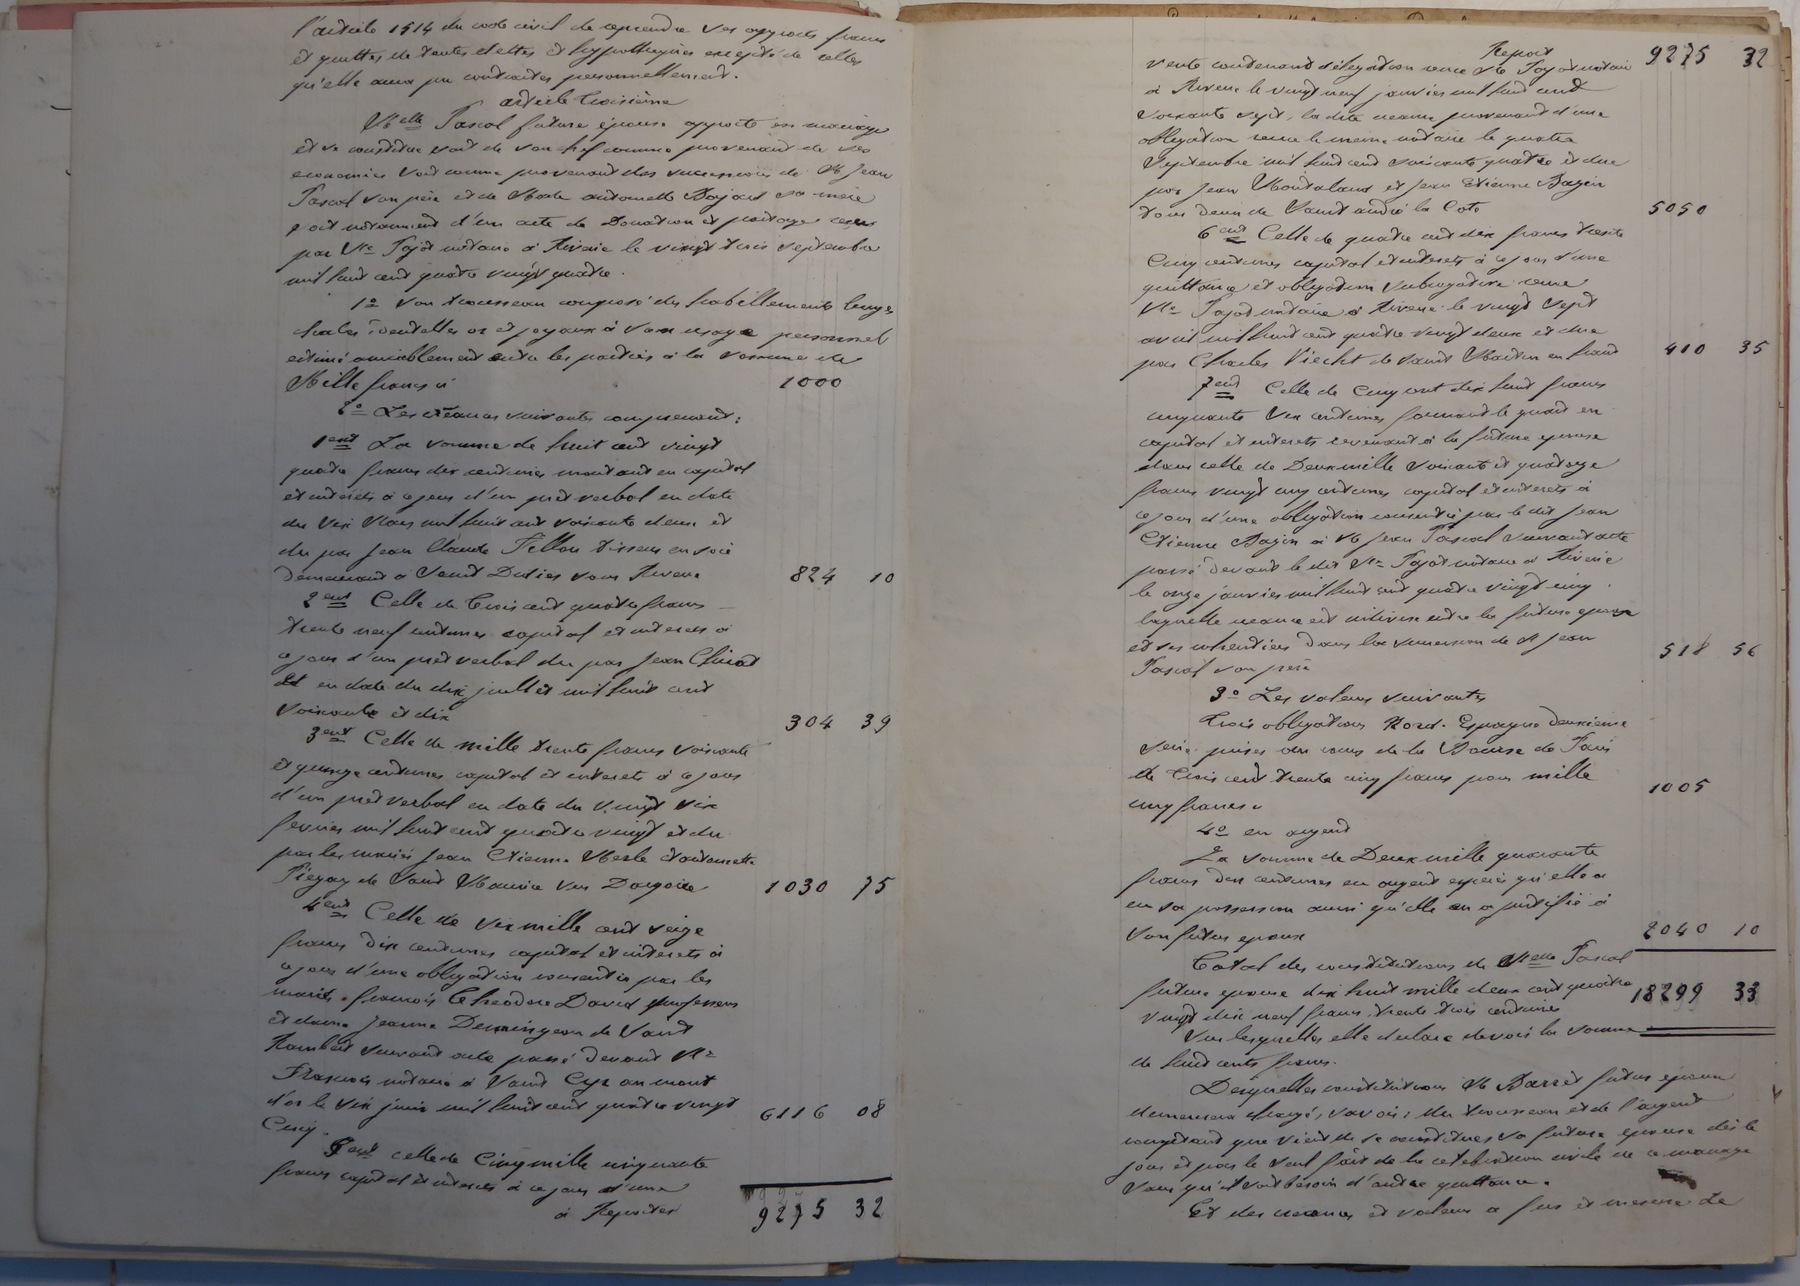 l'article 1514 du code civil de reprendre ses apports francs
et quittes de toutes dettes et hypothèques excepté de celles
qu'elle aura pu contracter personnellement.
article troisième
Melle Pascal future épouse apporte en mariage
et se constitue soit de son chef comme provenant de ses
économies soit comme provenant des successions de M Jean
Pascal son père et de Made antoinette Bajard sa mère
soit notamment d'un acte de Donation et partage reçu
par Me Pajot notaire à Riverie le vingt trois septembre
mil huit cent quatre vingt quatre.
1o Son trousseau composé des habillements linges
chales, dentelles or et joyaux à son usage personnel
estimé amiablement entre les parties à la somme de
Mille francs ci 1000
2o Les créances suivantes comprenant:
1ent La somme de huit cent vingt
quatre francs dix centimes montant en capital
et intérêts à ce jour d'un prêt verbal en date
du six Mars mil huit cent soixante deux et
du par Jean Claude Fillon tisseur en soie
demeurant à Saint Didier sous Riverie 824 10
2ent Celle de trois cent quatre francs
trente neuf centimes capital et intérêts à
ce jour d'un prêt verbal du par Jean
et en date du dix juillet mil huit cent
soixante et dix 304 39
3ent Celle de mille trente francs soixante
et quinze centimes capital et intérêts à ce jour
d'un prêt verbal en date du vingt six
février mil huit cent quatre vingt et du
par les mariés Jean Etienne et antoinette
Piegay de Saint Maurice sur Dargoire 1030 75
4ent Celle de six mille cent seize
francs dix centimes capital et intérêts à
ce jour d'une obligation consentie par les
mariés françois Théodore David professeur
et dame Jeanne de Saint
Rambert suivant acte passé devant Me
notaire à Saint Cyr au mont
d'or le six juin mil huit cent quatre vingt
Cinq. 6116 08
5ent celle de Cinq mille cinquante
francs capital et intérêts à ce jour d'une
à Reporter 9275 32
Report 9275 32
vente contenant délégation reçue Me Pajot notaire
à Riverie le vingt neuf janvier mil huit cent
soixante sept, la dite créance provenant d'une
obligation reçue le même notaire le quatre
Septembre mil huit cent soixante quatre et due
par Jean et Jean Etienne Bazin
tous deux de Saint andré la Cote 5050
6ent Celle de quatre cent dix francs trente
Cinq centimes capital et intérêts à ce jour d'une
quittance et obligation subrogative reçue
Me Pajot notaire à Riverie le vingt sept
avril mil huit cent quatre vingt deux et due
par Charles de Saint Martin en haut 410 35
7ent Celle de Cinq cent dix huit francs
cinquante six centimes formant le quart en
capital et intérêts revenant à la future épouse
dans celle de Deux mille soixante et quatorze
francs vingt cinq centimes capital et intérêts à
ce jour d'une obligation consentie par le dit Jean
Etienne Bazin à M Jean Pascal suivant acte
passé devant le dit Me Pajot notaire à Riverie
le onze janvier mil huit cent quatre vingt cinq.
laquelle créance est indivise entre la future épouse
et ses cohéritiers dans la succession de M Jean
Pascal son père 518 56
3o Les valeurs suivantes
trois obligations Nord. Espagne deuxième
série prises au cours de la Bourse de Paris
de trois cent trente cinq francs pour mille
cinq francs. 1005
4o en argent
La somme de Deux mille quarante
francs dix centimes en argent espèces qu'elle a
en sa possession ainsi qu'elle en a justifié à
son futur époux 2040 10
Total des constitutions de Melle Pascal
future épouse dix huit mille deux cent quatre 18299 33
vingt dix neuf francs, trente trois centimes
Sur lesquelles elle déclare devoir la somme
de huit cents francs.
Desquelles constitutions M Barret futur époux
demeurera chargé, savoir: du trousseau et de l'argent
comptant que vient de se constituer sa future épouse dès le
jour et par le seul fait de la célébration civile de ce mariage
sans qu'il soit besoin d'autre quittance.
Et des créances et valeurs a fur et mesure de